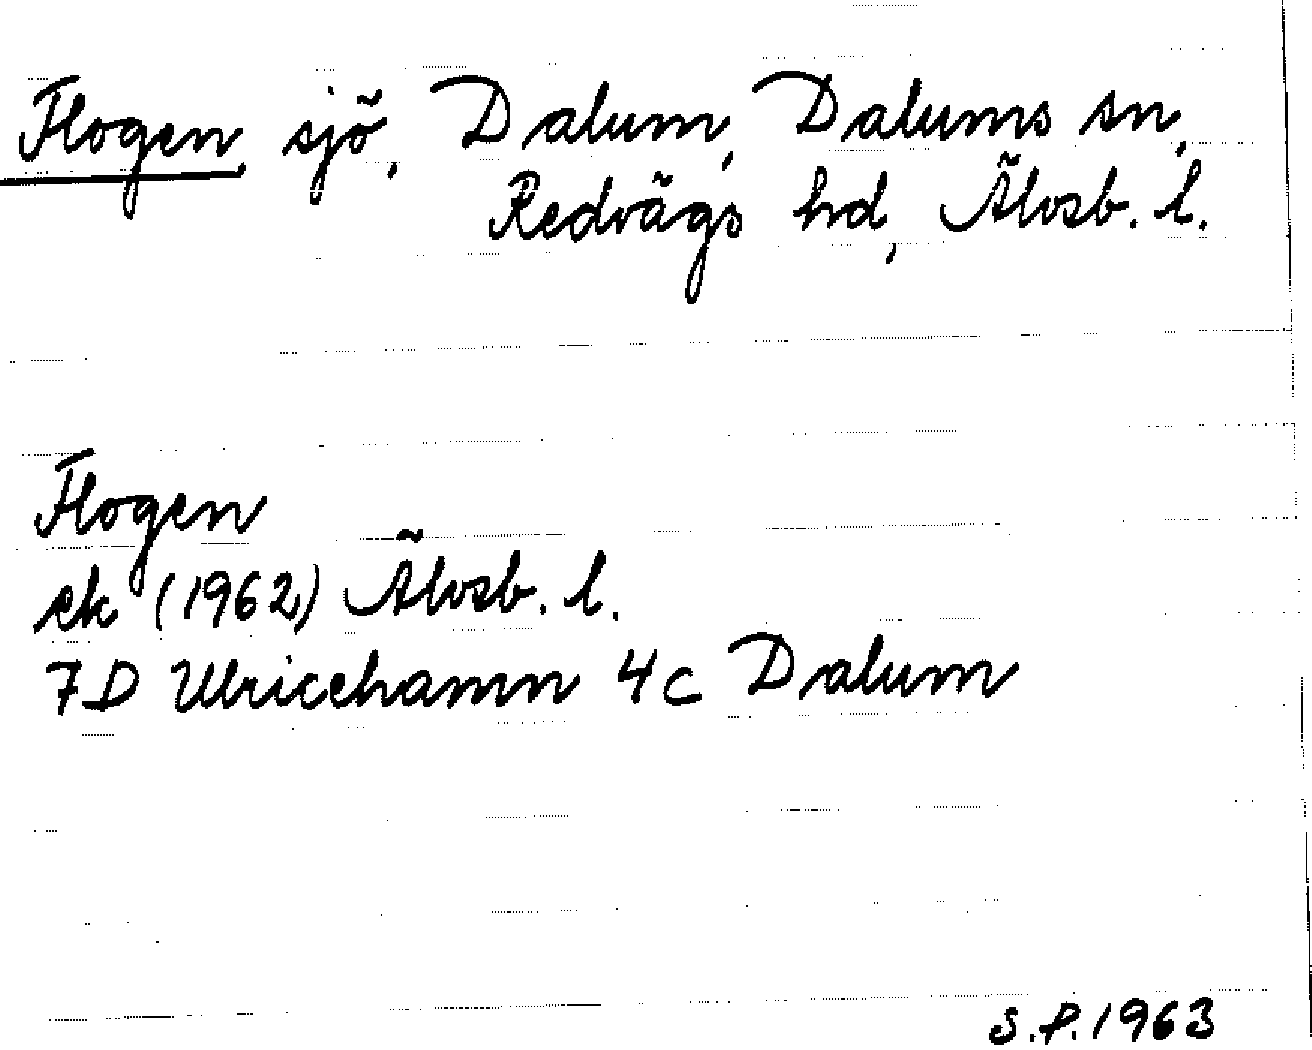 Flogen, sjö, Dalum, Dalums sn,
Redvägs hd, Älvsb. l.
Flogen
ek (1962) Älvsb. l.
7D Ulricehamn 4c Dalum
S.P. 1963